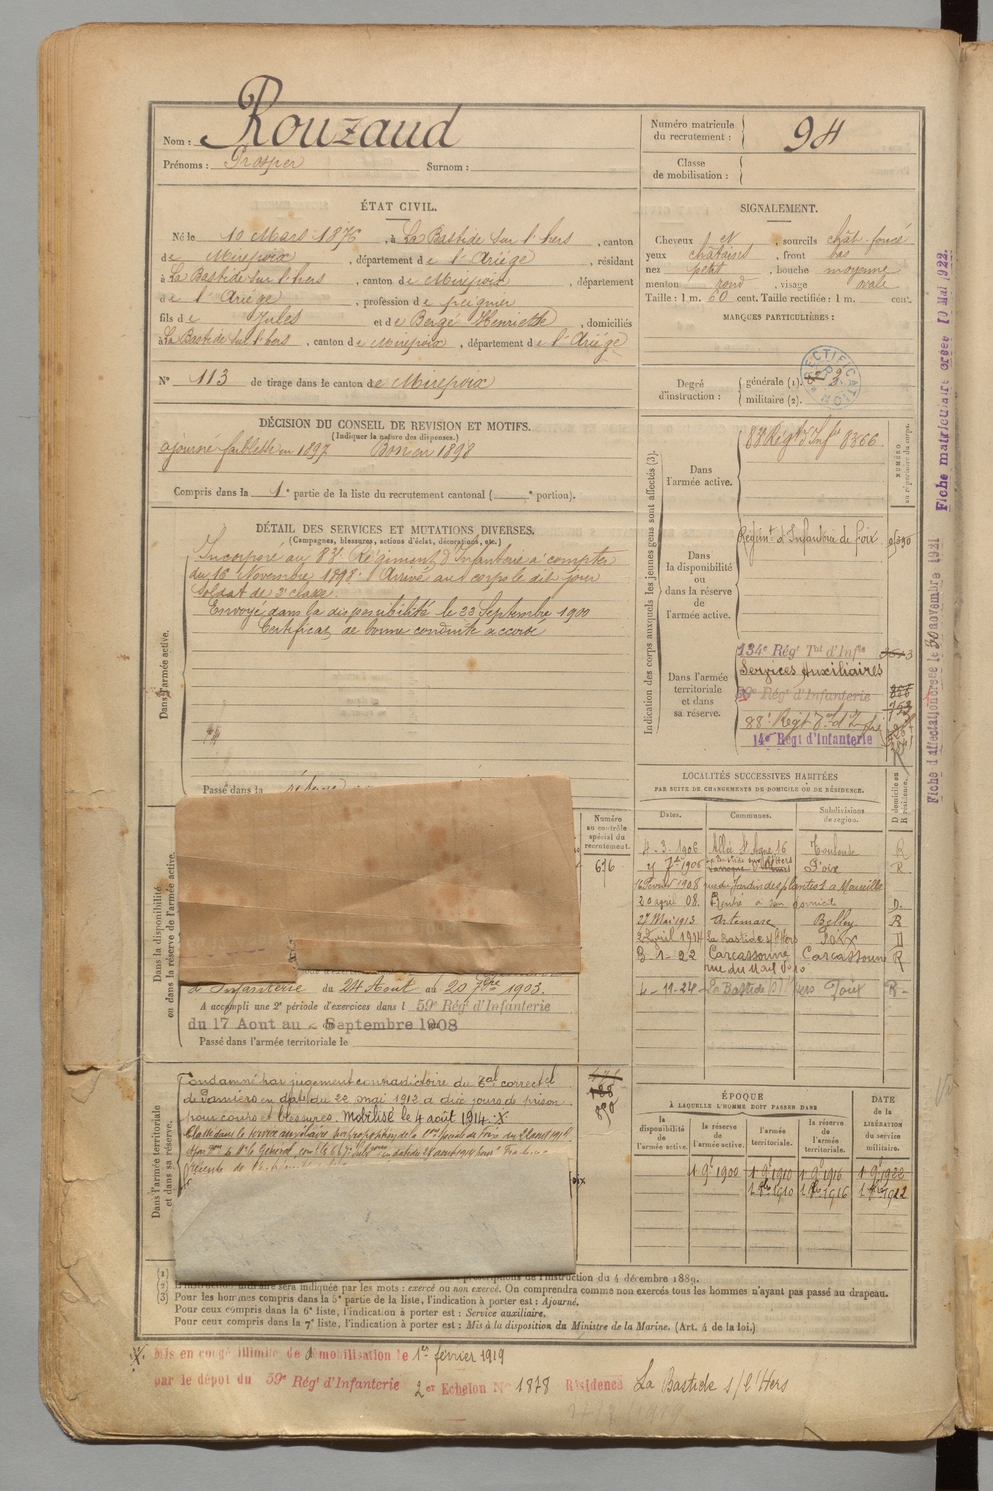 Nom : Rouzaud
Prénoms : Prosper Surnom :
Numéro matricule du recrutement : 94
Classe de mobilisation :
ÉTAT CIVIL.
Né le 10 Mars 1876, à La Bastide sur l'hers, canton
de Mirepoix, département de l'Ariège, résidant
à La Bastide sur l'hers, canton de Mirepoix, département
de l'Ariège, profession de peignier
fils de Jules et de Bergé Henriette, domiciliés
à La Bastide sur l'hers, canton de Mirepoix, département de l'Ariège
N° 113 de tirage dans le canton de Mirepoix
SIGNALEMENT.
Cheveux et, sourcils chât. foncé
yeux châtains, front bas
nez petit, bouche moyenne
menton rond, visage ovale
Taille : 1 m. 60 cent. Taille rectifiée : 1 m. cent.
MARQUES PARTICULIÈRES :
Degré d'instruction : générale (1).
militaire (2).
RECTIFICATION
DÉCISION DU CONSEIL DE REVISION ET MOTIFS.
(Indiquer la nature des dispenses.)
ajourné faiblesse en 1897 Bon en 1898
Compris dans la 1e partie de la liste du recrutement cantonal ( e portion).
DÉTAIL DES SERVICES ET MUTATIONS DIVERSES.
(Campagnes, blessures, actions d'éclat, décorations, etc.)
Dans l'armée active.
Incorporé au 83e Régiment d'Infanterie à compter
du 16 Novembre 1898. Arrivé au corps le dit jour
Soldat de 2e classe.
Envoyé dans la disponibilité le 23 Septembre 1900
Certificat de bonne conduite accordé
Passé dans la réserve
Indication des corps auxquels les jeunes gens sont affectés (3).
NUMÉRO au répertoire du corps.
Dans l'armée active.
83e Régt d'Infie 8366
Dans la disponibilité ou dans la réserve de l'armée active.
Régimt d'Infanterie de Foix
Dans l'armée territoriale et dans sa réserve.
134e Régt Tal d'Infie
Services Auxiliaires
59e Régt d'Infanterie
88e Régt
14e Régt d'Infanterie
Fiche d'affectation créée le 30 novembre 1921
Fiche matriculaire créée 10 Mai 1922.
LOCALITÉS SUCCESSIVES HABITÉES
PAR SUITE DE CHANGEMENTS DE DOMICILE OU DE RÉSIDENCE.
D domicile ou R résidence.
Dates. Communes. Subdivisions de région.
4-3-1906 Allée St Agne 16 Toulouse R
7bre 1906 La Bastide sur l'Hers Foix R
16 février 1908 rue du Jardin des plantes 1 a Marseille
20 avril 08. Rentré à son domicile D.
27 Mai 1913 Artemare Belley R
2 avril 1914 La Bastide s/l'Hers Foix D
3-1-22 Carcassonne Carcassonne R
rue du Mail
4-11-24 La Bastide s/l'Hers Foix R
Numéro au contrôle spécial du recrutement.
676
Dans la disponibilité ou dans la réserve de l'armée active.
d'Infanterie du 24 Août au 20 7bre 1903.
A accompli une 2e période d'exercices dans l 59e Régt d'Infanterie
du 17 Aout au Septembre 1908
Passé dans l'armée territoriale le
Dans l'armée territoriale et dans sa réserve.
Condamné par jugement contradictoire du Tal correctel
de Pamiers en date du 22 mai 1912 à dix jours de prison
pour coups et blessures. Mobilisé le 4 août 1914. X
Classé dans le service auxiliaire
ÉPOQUE
À LAQUELLE L'HOMME DOIT PASSER DANS
la disponibilité de l'armée active.
la réserve de l'armée active.
l'armée territoriale.
la réserve de l'armée territoriale.
DATE de la LIBÉRATION du service militaire.
1 9bre 1900 1 9bre 1910 1 9bre 1916 1 9bre 1922
1 8bre 1910 1 8bre 1916 1 8bre 1922
(1) prescriptions de l'instruction du 4 décembre 1889.
(2) L'instruction militaire sera indiquée par les mots : exercé ou non exercé. On comprendra comme non exercés tous les hommes n'ayant pas passé au drapeau.
(3) Pour les hommes compris dans la 5e partie de la liste, l'indication à porter est : Ajourné.
Pour ceux compris dans la 6e liste, l'indication à porter est : Service auxiliaire.
Pour ceux compris dans la 7e liste, l'indication à porter est : Mis à la disposition du Ministre de la Marine. (Art. 4 de la loi.)
X. Mis en congé illimité de démobilisation le 1er février 1919
par le dépôt du 59e Régt d'Infanterie 2e Echelon N° 1878 Résidence La Bastide s/l'Hers